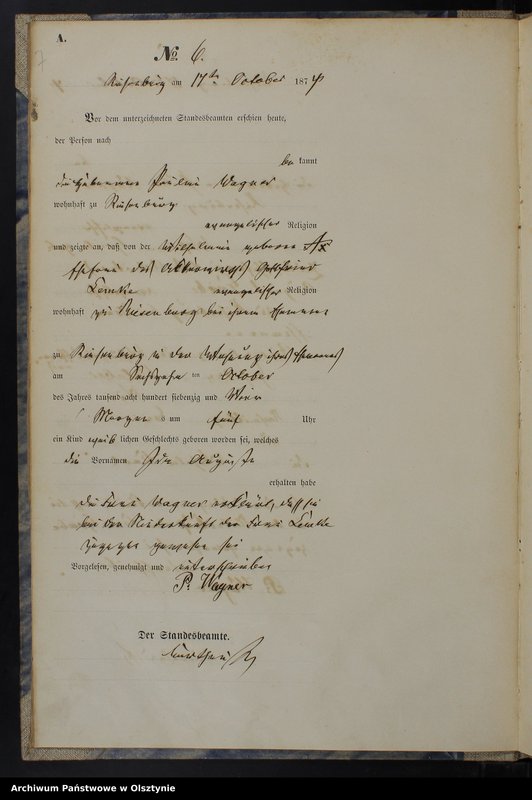 A.
7
No 6.
Riesenburg am 17ten October 1874
Vor dem unterzeichneten Standesbeamten erschien heute,
der Person nach
be kannt
die Hebamme Pauline Wagner
wohnhaft zu Riesenburg
evangelischer Religion
und zeigte an, daß von der Wilhelmine geborene
Ehefrau des Gottfried
Lemke evangelischer Religion
wohnhaft zu Riesenburg bei ihrem Ehemanne
zu Riesenburg in der Wohnung ihres Ehemannes
am Sechszehn ten October
des Jahres tausend acht hundert siebenzig und Vier
Morgens um fünf Uhr
ein Kind weib lichen Geschlechts geboren worden sei, welches
die Vornamen Ida Auguste
erhalten habe
die Frau Wagner erklärt, daß sie
bei der Niederkunft der Frau Lemke
zugegen gewesen sei
Vorgelesen, genehmigt und unterschrieben
P. Wagner
Der Standesbeamte.
Archiwum Państwowe w Olsztynie